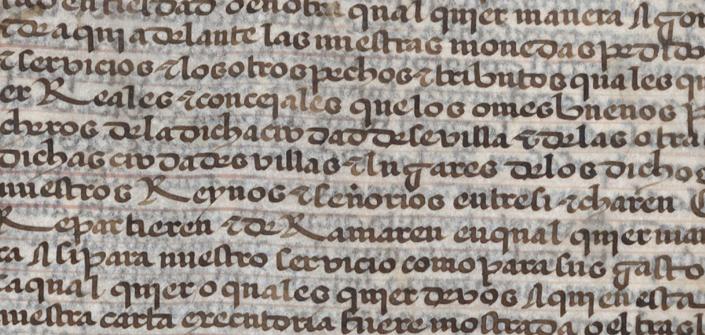 en ciudad o en otra qual quier manera Ago
de aqui adelante las nuestras monedas pedido
τ servicios τ los otros pechos τ tributos quales qu
er Reales τ concejales que los omes buenos p
cheros dela dicha civdad de sevilla τ de las otra
dichas civdades villas τ lugares delos dichos
nuestros Reynos τ señorios entre si τcharen
Repartieren τ de Ramaren en qual quier man
ra Asi para nuestro servicio como para sus gasto
a qual quier o quales quier de vos A quien esta
nuestra carta executoria fuere mostrada